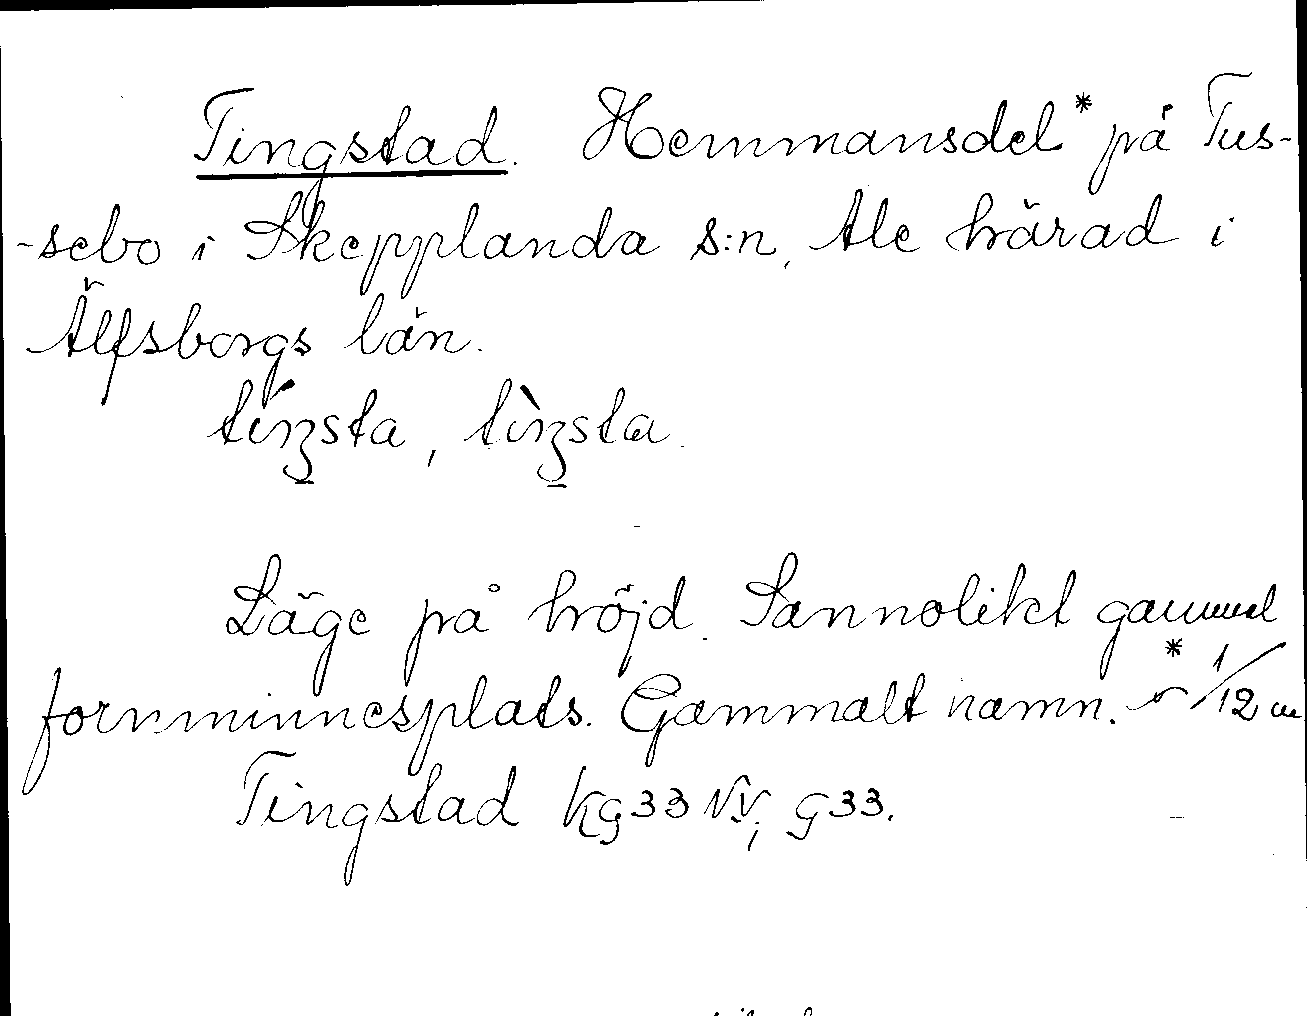 Tingstad. Hemmansdel* på Tus-
-sebo i Skepplanda s:n, Ale härad i
Älfsborgs län.
tíŋsta, tìŋsta.
Läge på höjd. Sannolikt gammal
fornminnesplats. Gammalt namn. * 1/12 m
Tingstad Kg 33 NV, G 33.